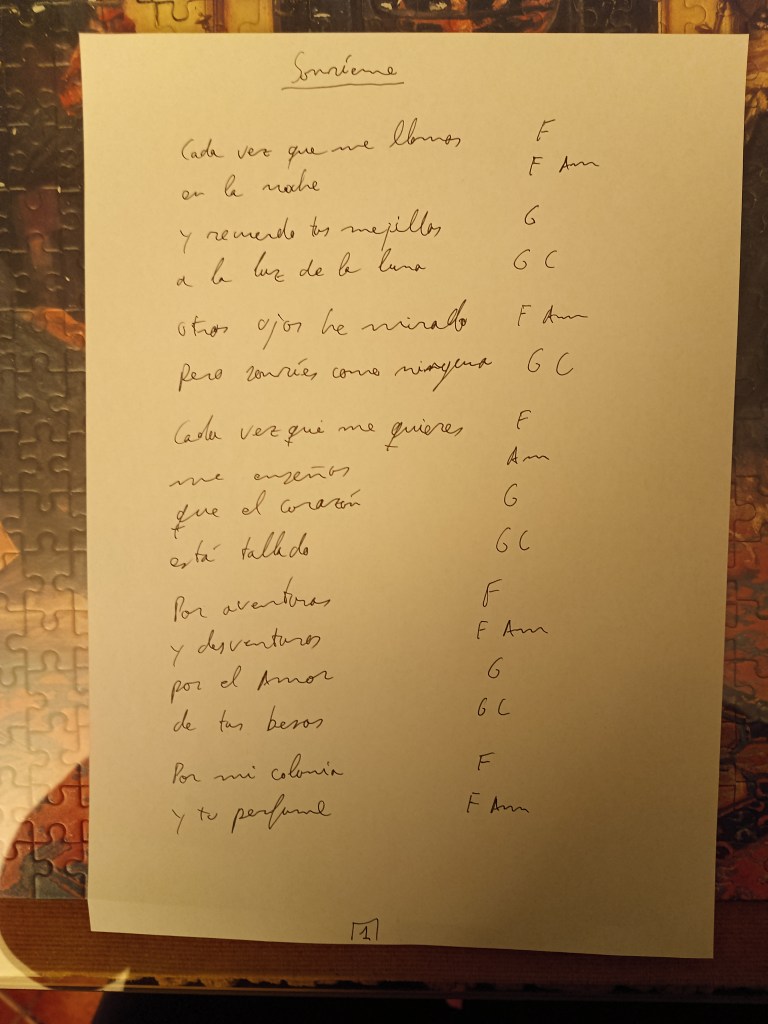 Sonríeme
Cada vez que me llamas F
en la noche F Am
y recuerdo tus mejillas G
a la luz de la luna G C
otros ojos he mirado F Am
Pero sonríes como ninguna G C
Cada vez que me quieres F
me enseñas Am
que el corazón G
está tallado G C
Por aventuras F
y desventuras F Am
por el Amor G
de tus besos G C
Por mi colonia F
y tu perfume F Am
1